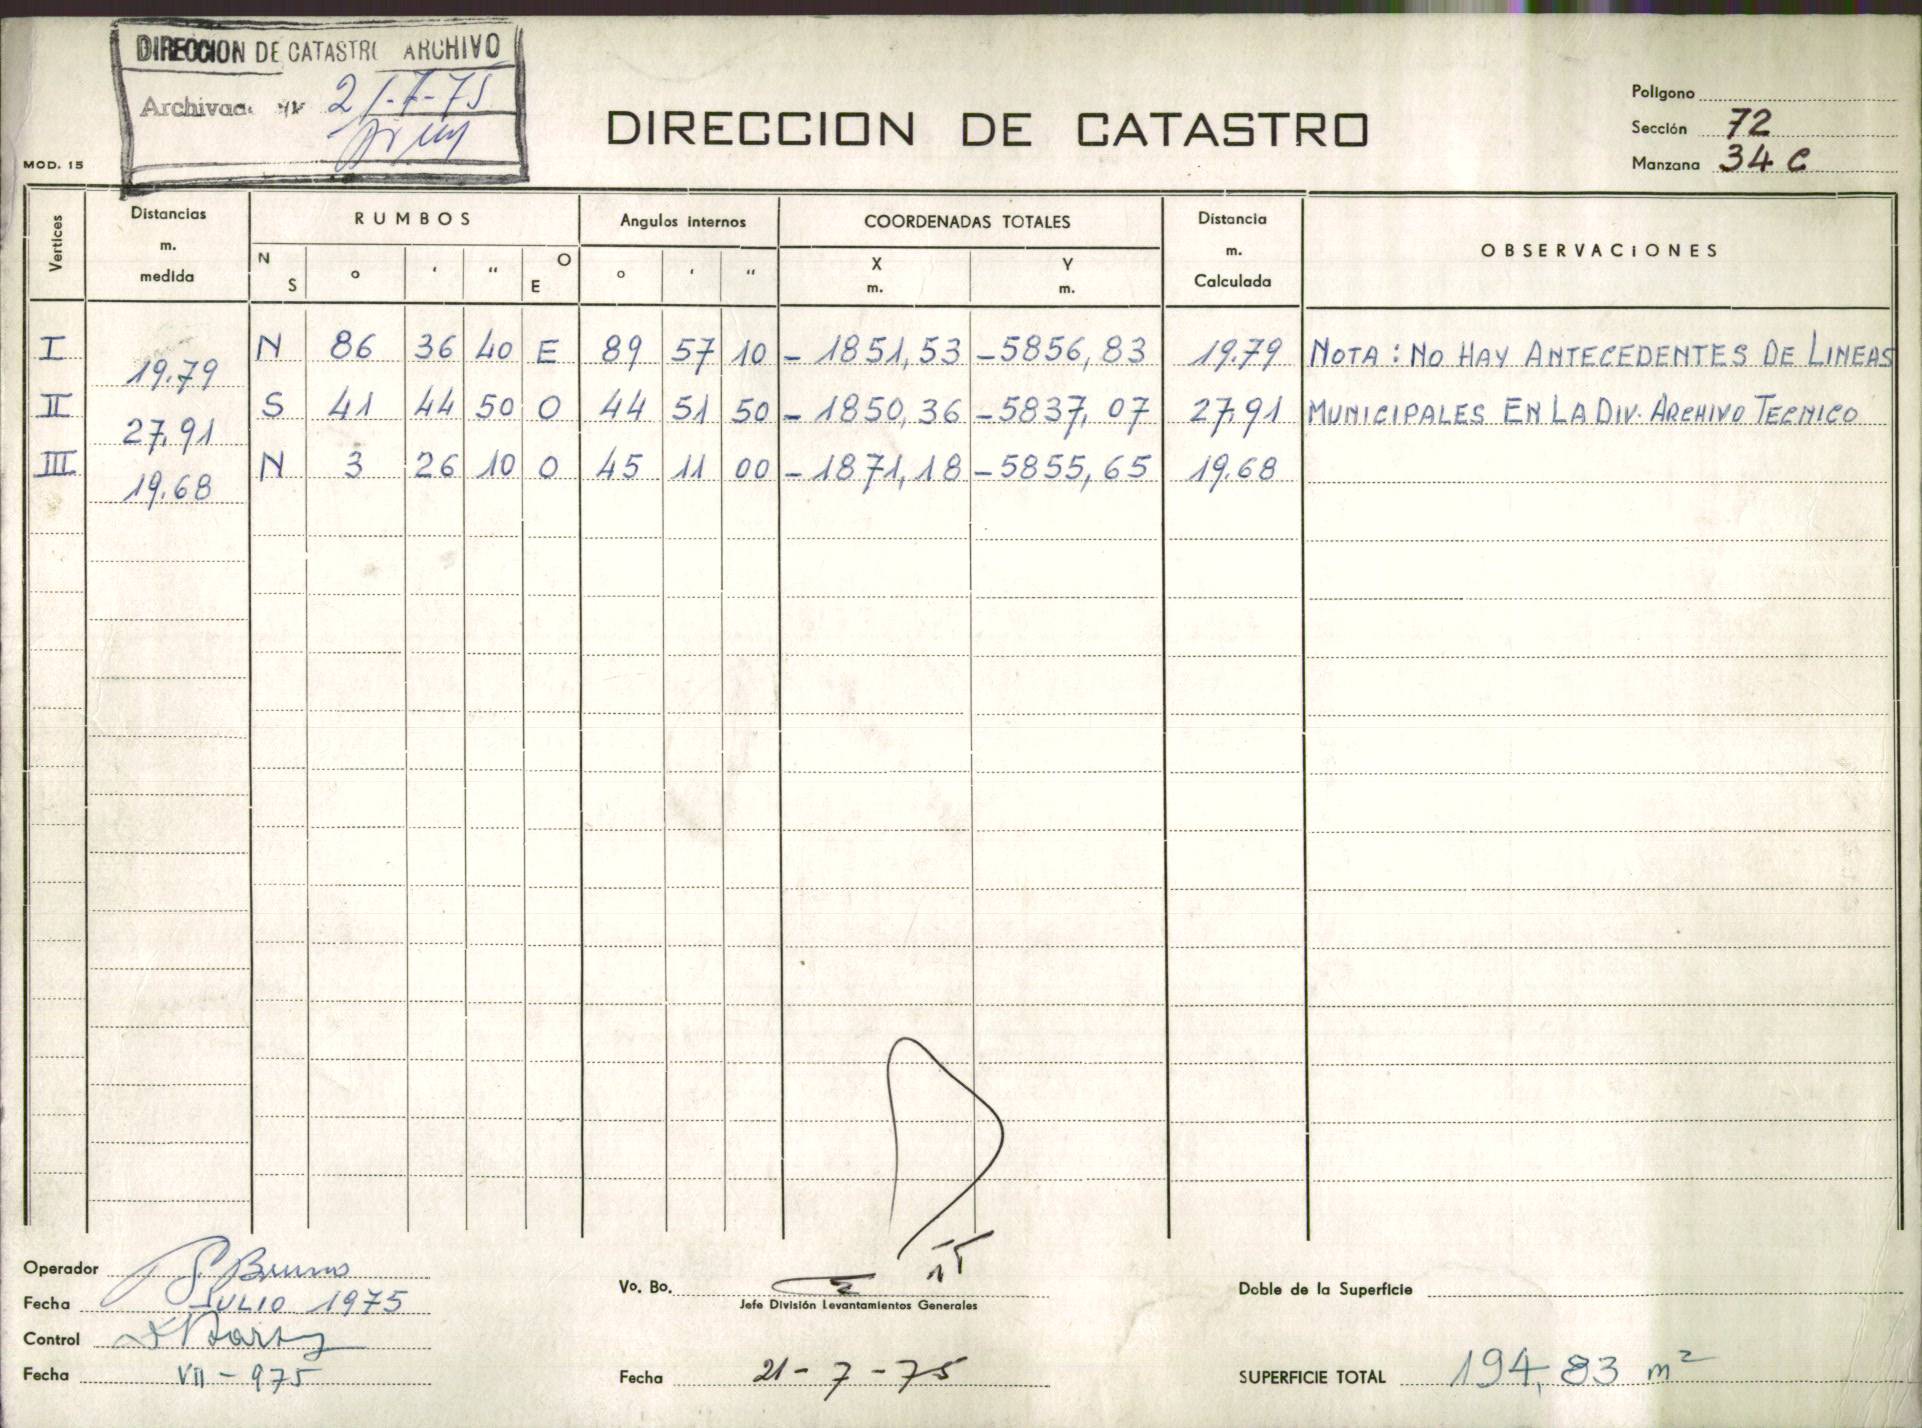 DIRECCION DE CATASTRO ARCHIVO
Archivado 21-7-75
MOD. 15
DIRECCION DE CATASTRO
Poligono
Sección 72
Manzana 34 C
Vertices Distancias m. medida RUMBOS Angulos internos COORDENADAS TOTALES Distancia m. Calculada OBSERVACIONES
N S ° ' " O E ° ' " X m. Y m.
I 19.79 N 86 36 40 E 89 57 10 -1851,53 -5856,83 19.79 NOTA: NO HAY ANTECEDENTES DE LINEAS
II 27,91 S 41 44 50 O 44 51 50 -1850,36 -5837,07 27,91 MUNICIPALES EN LA DIV. ARCHIVO TECNICO
III 19.68 N 3 26 10 O 45 11 00 -1871,18 -5855,65 19.68
Operador Bruno
Fecha JULIO 1975
Control
Fecha VII-975
Vo. Bo.
Jefe División Levantamientos Generales
Fecha 21-7-75
Doble de la Superficie
SUPERFICIE TOTAL 194,83 m²